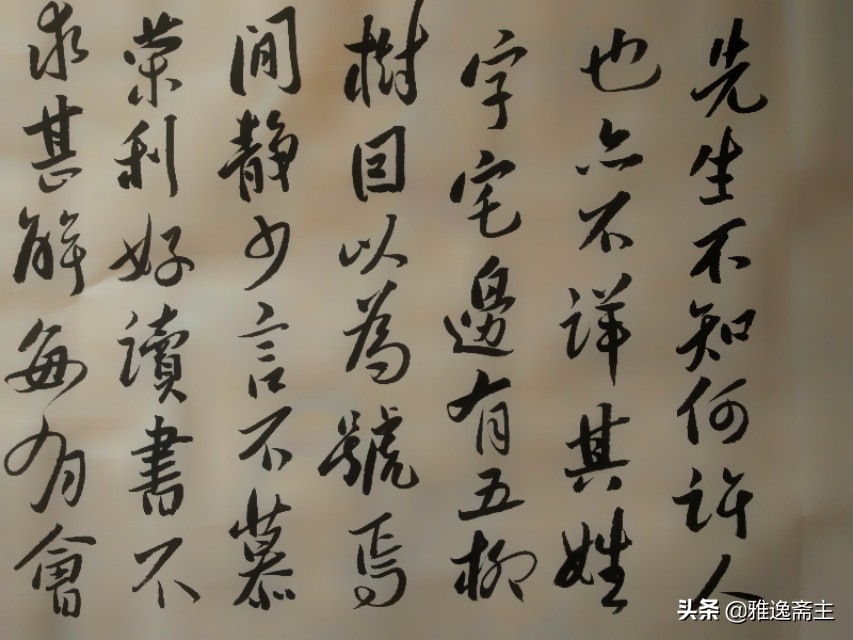 先生不知何許人
也亦不詳其姓
字宅邊有五柳
樹因以為號焉
閒靜少言不慕
榮利好讀書不
求甚解每有會
头条 @雅逸斋主